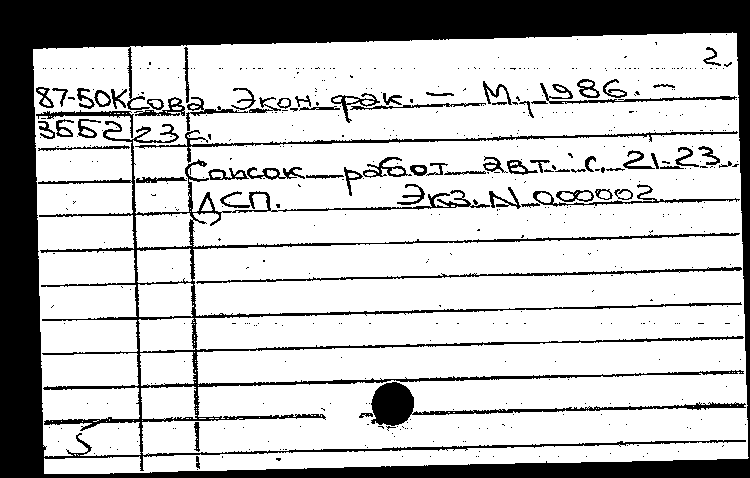 2.
87-50К сова. Экон. фак. — М., 1986. —
3552 23 с.
Список работ авт. с. 21-23.
ДСП. Экз. N 000002
5